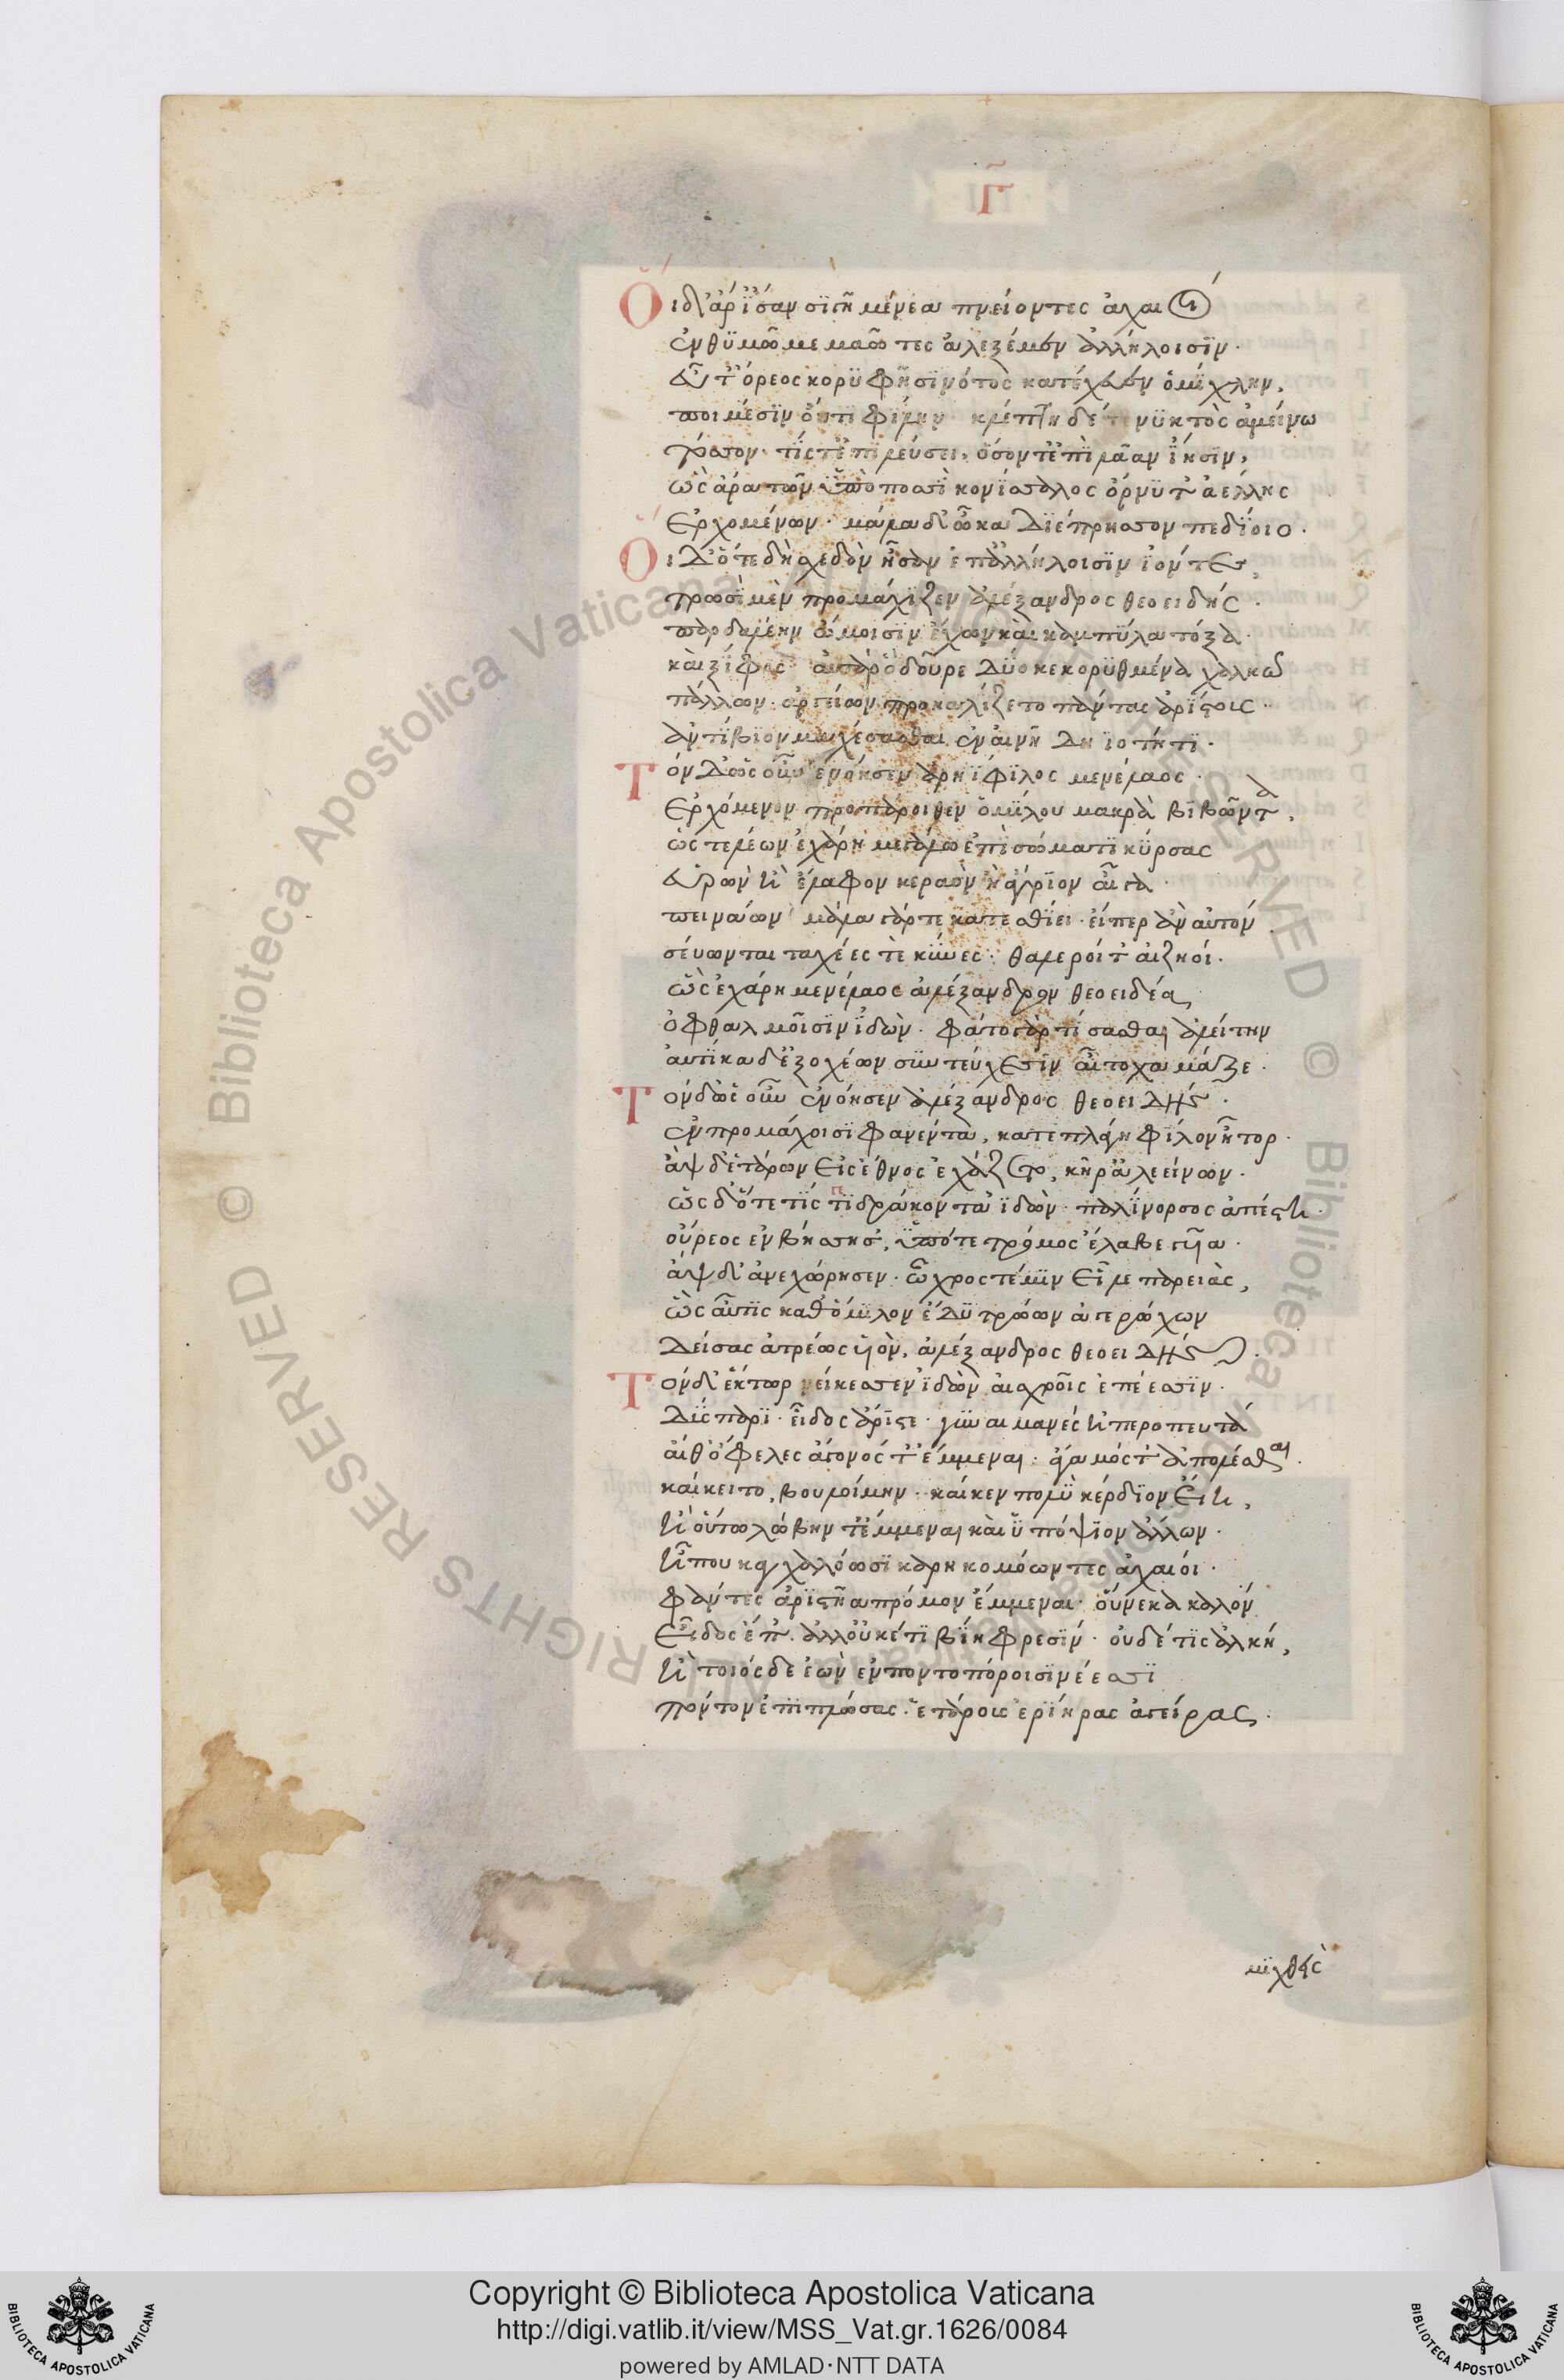 Γ
Οἱ δ' ἄρ' ἴσαν σιγῇ μένεα πνείοντες ἀχαιοί
ἐν θυμῷ μεμαῶτες ἀλεξέμεν ἀλλήλοισιν.
Εὖτ' ὄρεος κορυφῇσι νότος κατέχευεν ὁμίχλην,
ποιμέσιν οὔτι φίλην κλέπτῃ δέ τι νυκτὸς ἀμείνω
τόσσον τίς τ' ἐπιλεύσει, ὅσον τ' ἐπὶ λᾶαν ἵησιν,
ὣς ἄρα τῶν ὑπὸ ποσσὶ κονίσσαλος ὄρνυτ' ἀελλὴς
Ερχομένων. μάλα δ' ὦκα διέπρησσον πεδίοιο.
Οἱ δ' ὅτε δὴ σχεδὸν ἦσαν ἐπ' ἀλλήλοισιν ἰόντες,
τρωσὶ μὲν προμάχιζεν ἀλέξανδρος θεοειδής.
παρδαλέην ὤμοισιν ἔχων καὶ καμπύλα τόξα.
καὶ ξίφος αὐτὰρ ὃ δοῦρε δύο κεκορυθμένα χαλκῷ
πάλλων. ἀργείων προκαλίζετο πάντας ἀρίστους.
ἀντίβιον μαχέσασθαι ἐν αἰνῇ δηϊοτῆτι.
Τὸν δ' ὡς οὖν ἐνόησεν ἀρηΐφιλος μενέλαος.
Ερχόμενον προπάροιθεν ὁμίλου μακρὰ βιβῶντα,
ὥς τε λέων ἐχάρη μεγάλῳ ἐπὶ σώματι κύρσας
Εὑρὼν ἢ ἔλαφον κεραὸν ἢ ἄγριον αἶγα.
πεινάων μάλα γάρ τε κατεσθίει. εἴπερ ἂν αὐτὸν
σεύωνται ταχέες τε κύνες. θαλεροί τ' αἰζηοί.
ὣς ἐχάρη μενέλαος ἀλέξανδρον θεοειδέα
ὀφθαλμοῖσιν ἰδών. φάτο γὰρ τίσασθαι ἀλείτην
αὐτίκα δ' ἐξ ὀχέων σὺν τεύχεσιν ἆλτο χαμᾶζε.
Τὸν δ' ὡς οὖν ἐνόησεν ἀλέξανδρος θεοειδής.
ἐν προμάχοισι φανέντα, κατεπλήγη φίλον ἦτορ.
ἂψ δ' ἑτάρων εἰς ἔθνος ἐχάζετο, κῆρ' ἀλεείνων.
ὡς δ' ὅτε τίς τε δράκοντα ἰδὼν παλίνορσος ἀπέστη.
οὔρεος ἐν βήσσῃς, ὑπό τε τρόμος ἔλαβε γυῖα.
ἂψ δ' ἀνεχώρησεν. ὦχρος τέ μιν εἷλε παρειὰς,
ὣς αὖτις καθ' ὅμιλον ἔδυ τρώων ἀγερώχων
Δείσας ἀτρέως υἱὸν, ἀλέξανδρος θεοειδής.
Τὸν δ' ἕκτωρ νείκεσσεν ἰδὼν αἰσχροῖς ἐπέεσσιν.
Δύσπαρι. εἶδος ἄριστε. γυναιμανές ἠπεροπευτὰ
αἴθ' ὄφελες ἄγονός τ' ἔμμεναι. ἄγαμός τ' ἀπολέσθαι.
καί κε τὸ, βουλοίμην. καί κεν πολὺ κέρδιον εἴη,
ἢ οὕτω λώβην τ' ἔμμεναι καὶ ὑπόψιον ἄλλων.
ἦ που καγχαλόωσι καρηκομόωντες ἀχαιοί.
φάντες ἀριστῆα πρόμον ἔμμεναι. οὕνεκα καλὸν
Εἶδος ἔπ'. ἀλλ' οὐκ ἔτι βίη φρεσίν. οὐδέ τις ἀλκή,
ἢ τοιόσδε ἐὼν ἐν ποντοπόροισι νέεσσι
πόντον ἐπιπλώσας. ἑτάρους ἐρίηρας ἀγείρας.
μιχθεὶς
Copyright © Biblioteca Apostolica Vaticana
http://digi.vatlib.it/view/MSS_Vat.gr.1626/0084
powered by AMLAD·NTT DATA